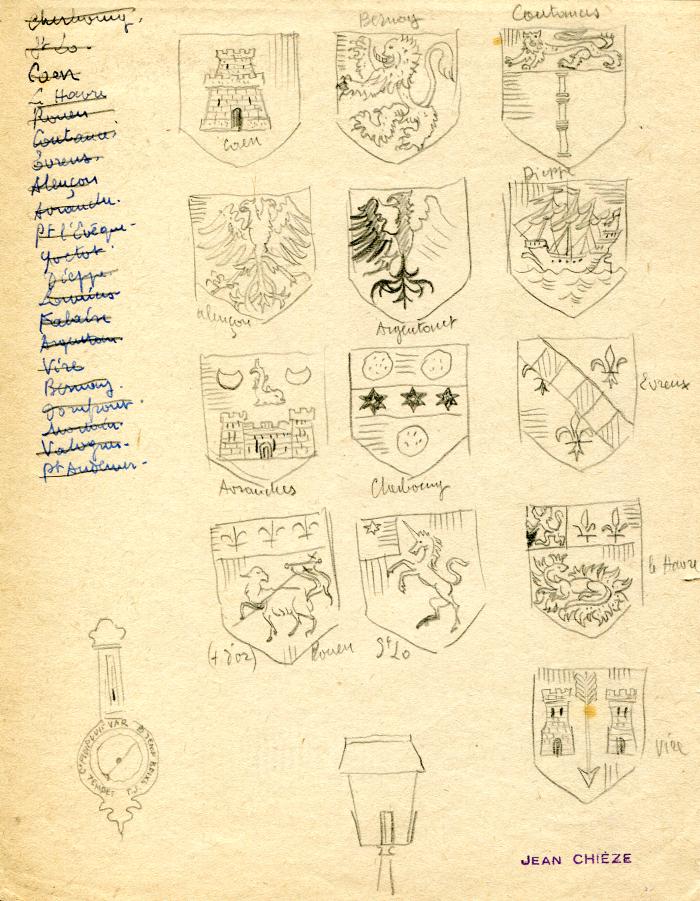 Cherbourg.
St Lo.
Caen
Le Havre
Rouen
Coutances
Evreux.
Alençon
Avranches.
Pt l'Evêque.
Yvetot.
Dieppe
Louviers
Falaise
Argentan.
Vire
Bernay.
Domfront.
Mortain.
Valognes.
Pt Audemer.
Bernay
Coutances
Caen
Dieppe
Alençon
Argentan
Evreux
Avranches
Cherbourg
le Havre
(+ d'or)
Rouen
St Lo
Vire
VAR
TEMPÊT
JEAN CHIÈZE